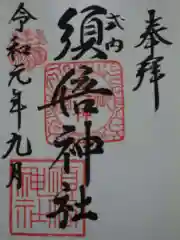 奉拝
式内
須倍神社
令和元年九月